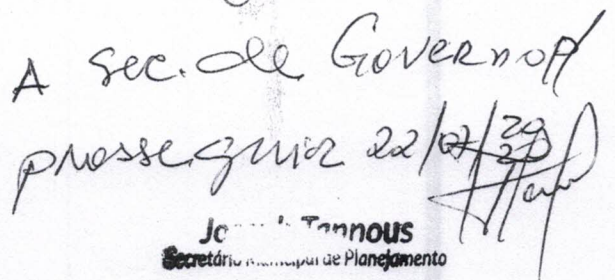 A Sec. de Governo p/
prosseguir 22/07/2020
Tannous
Secretário Municipal de Planejamento